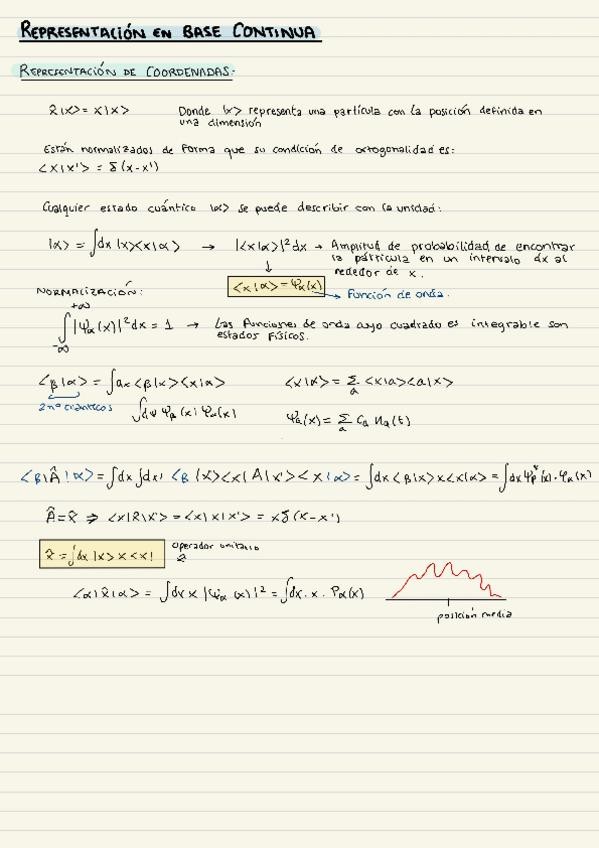 REPRESENTACIÓN EN BASE CONTINUA
REPRESENTACIÓN DE COORDENADAS:
x̂|x> = x|x> Donde |x> representa una partícula con la posición definida en
una dimensión
Están normalizados de forma que su condición de ortogonalidad es:
<x|x'> = δ(x-x')
Cualquier estado cuántico |α> se puede describir con la unidad:
|α> = ∫dx |x><x|α> → |<x|α>|²dx → Amplitud de probabilidad de encontrar
la partícula en un intervalo dx al
rededor de x.
↓
<x|α> = Ψα(x) → Función de onda.
NORMALIZACIÓN:
+∞
∫|Ψα(x)|²dx = 1 → Las funciones de onda cuyo cuadrado es integrable son
-∞ estados físicos.
<β|α> = ∫dx <β|x><x|α> <x|α> = Σ <x|a><a|x>
a
2 nº cuánticos ∫dx Ψβ(x) Ψα(x) Ψα(x) = Σ Ca Ua(t)
a
<β|Â|α> = ∫dx ∫dx' <β|x><x|A|x'><x|α> = ∫dx <β|x>x<x|α> = ∫dx Ψβ*(x)·Ψα(x)
Â = x̂ ⇒ <x|x̂|x'> = <x|x|x'> = xδ(x-x')
x̂ = ∫dx |x> x <x| operador unitario
x̂
<α|x̂|α> = ∫dx x |Ψα(x)|² = ∫dx · x · Pα(x)
posición media